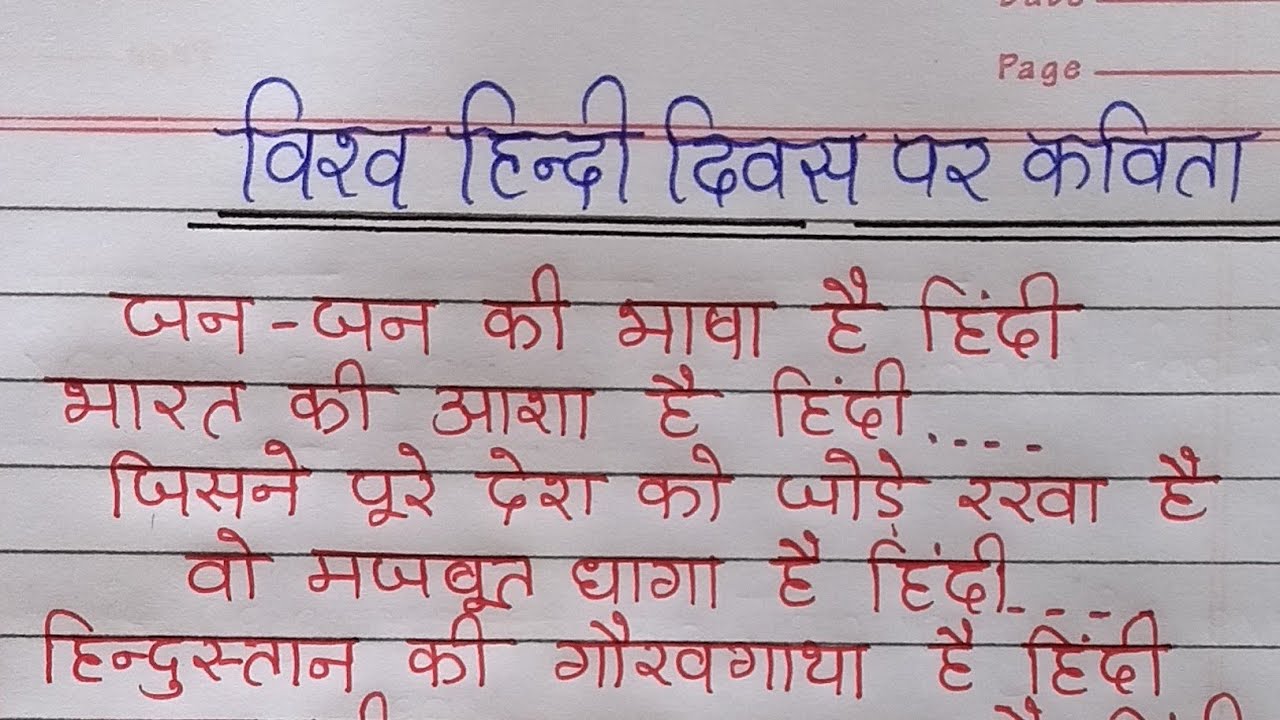 Page
विश्व हिन्दी दिवस पर कविता
जन-जन की भाषा है हिंदी
भारत की आशा है हिंदी....
जिसने पूरे देश को जोड़े रखा है
वो मजबूत धागा है हिंदी....
हिन्दुस्तान की गौरवगाथा है हिंदी